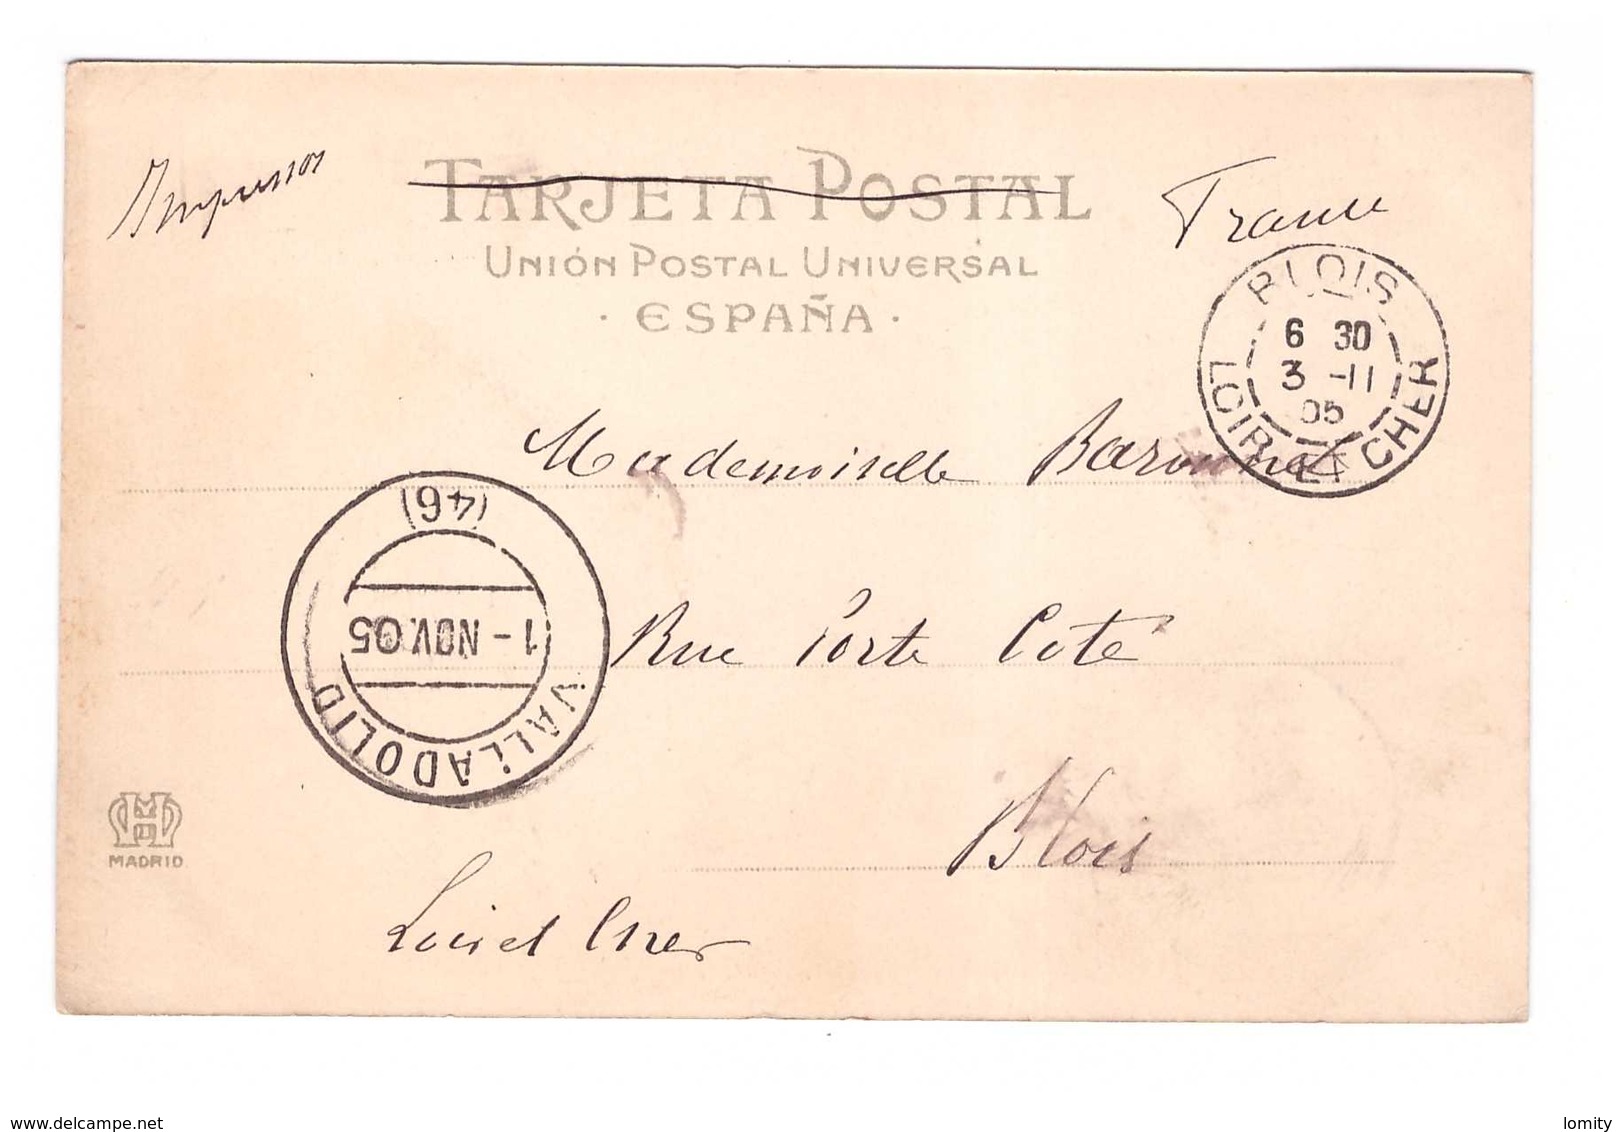 Impressos
TARJETA POSTAL
France
UNIÓN POSTAL UNIVERSAL
· ESPAÑA ·
BLOIS
6 30
3 -11
05
LOIR ET CHER
Mademoiselle
(46)
1 - NOV. 05
VALLADOLID
Rue Porte Coté
MADRID
Blois
Loir et Cher
www.delcampe.net
lomity